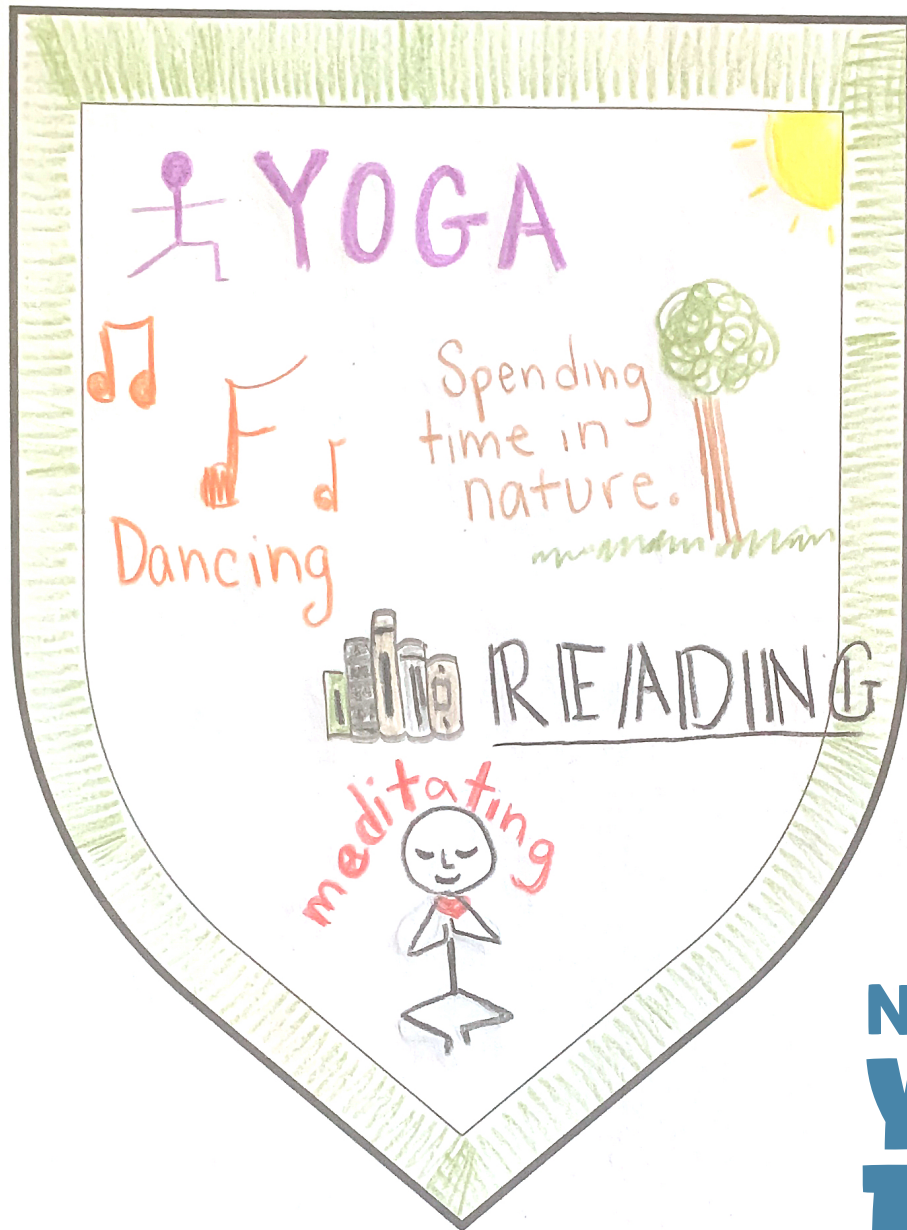 YOGA
Spending
time in
nature.
Dancing
READING
meditating
N
Y